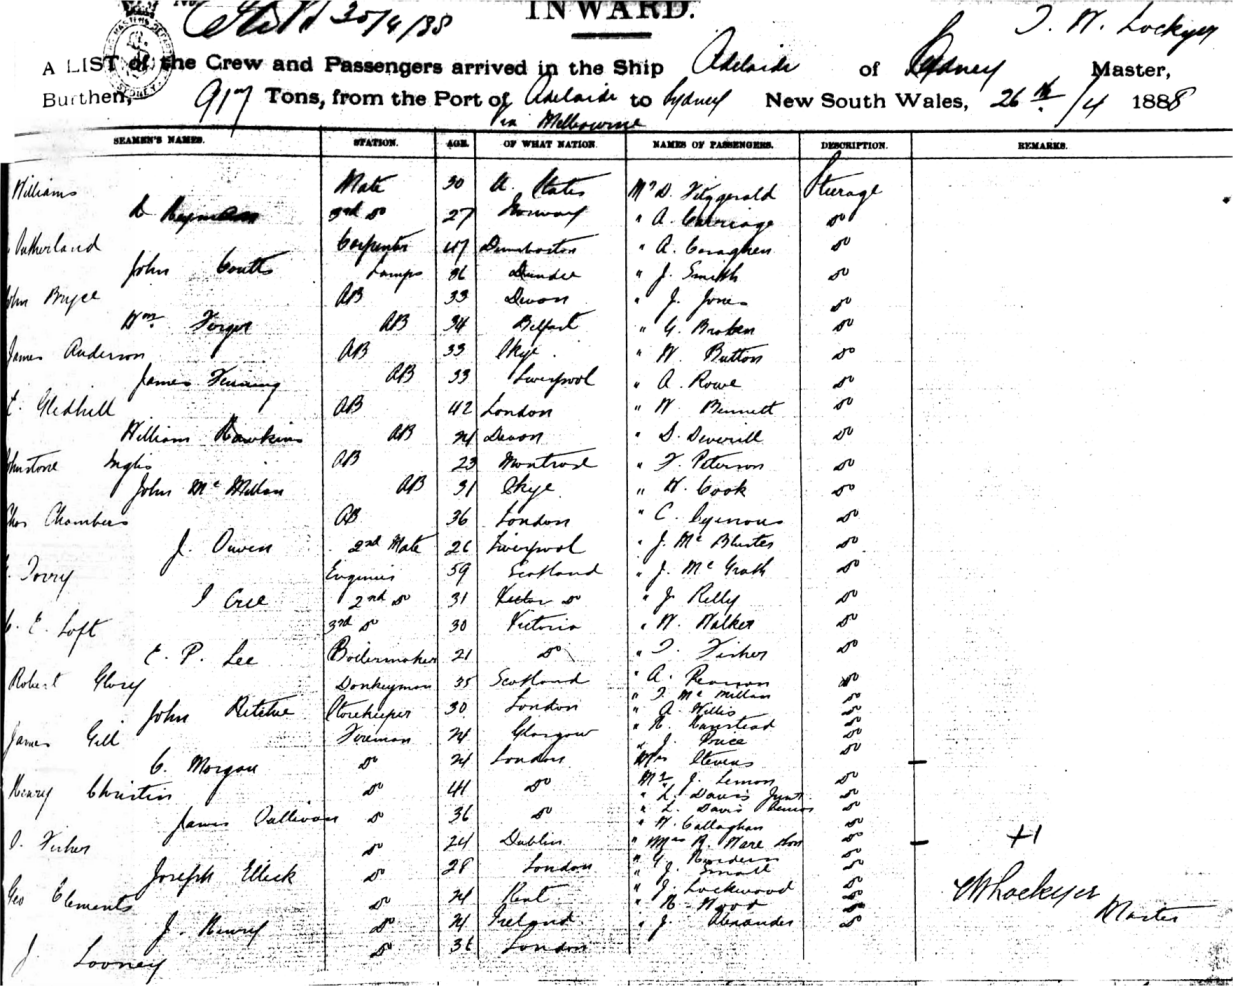 INWARD.
25/4/88
T. W. Lockyer
A LIST of the Crew and Passengers arrived in the Ship Adelaide of Sydney Master,
Burthen, 917 Tons, from the Port of Adelaide to Sydney New South Wales, 26th/4 1888
via Melbourne
SEAMEN'S NAMES. STATION. AGE. OF WHAT NATION. NAMES OF PASSENGERS. DESCRIPTION. REMARKS.
Williams Mate 30 U. States Mr D. Fitzgerald Steerage
3rd do 27 Norway " A. Carriage do
Sutherland Carpenter 47 Dumbarton " A. do
John Coutts Lamps 36 Dundee " J. Smith do
John Bryce AB 33 Devon " J. Jones do
Wm. AB 34 Belfast " G. Broken do
James Anderson AB 33 Skye " W. Button do
James AB 33 Liverpool " A. Rowe do
Gledhill AB 42 London " W. Bennett do
William Hawkins AB 24 Devon " D. Deverill do
Johnstone Inglis AB 23 Montrose " F. Peterson do
John McMillan AB 31 Skye " W. Cook do
Chas Chambers AB 36 London " C. do
J. Owen 2nd Mate 26 Liverpool " J. Mc do
Torry Engineer 59 Scotland " J. McGrath do
J Cree 2nd do 31 do " J. Kelly do
E. Loft 3rd do 30 Victoria " W. Walker do
E. P. Lee Boilermaker 21 do " T. Fisher do
Robert Glory Donkeyman 35 Scotland " A. Pearson do
" T. McMillan do
John Ritchie Storekeeper 30 London " A. Willis do
" Hanstead do
James Gill Fireman 24 Glasgow " J. Price do
C. Morgan do 24 London Mrs Stevens do
Henry Christin do 41 do Mr J. Lemon do
" L. Davis Junr do
James Sullivan do 36 do " L. Davis Senior do
" W. Callaghan do
Fisher do 24 Dublin " Mrs R. Ware Son do
" G. do
Joseph Elleck do 28 London " J. Small do
Geo Clements do 24 Kent " J. Lockwood do
" Wood do
J. Henry do 24 Ireland " J. Alexander do
J. Looney do 36 London
+1
WLockyer
Master